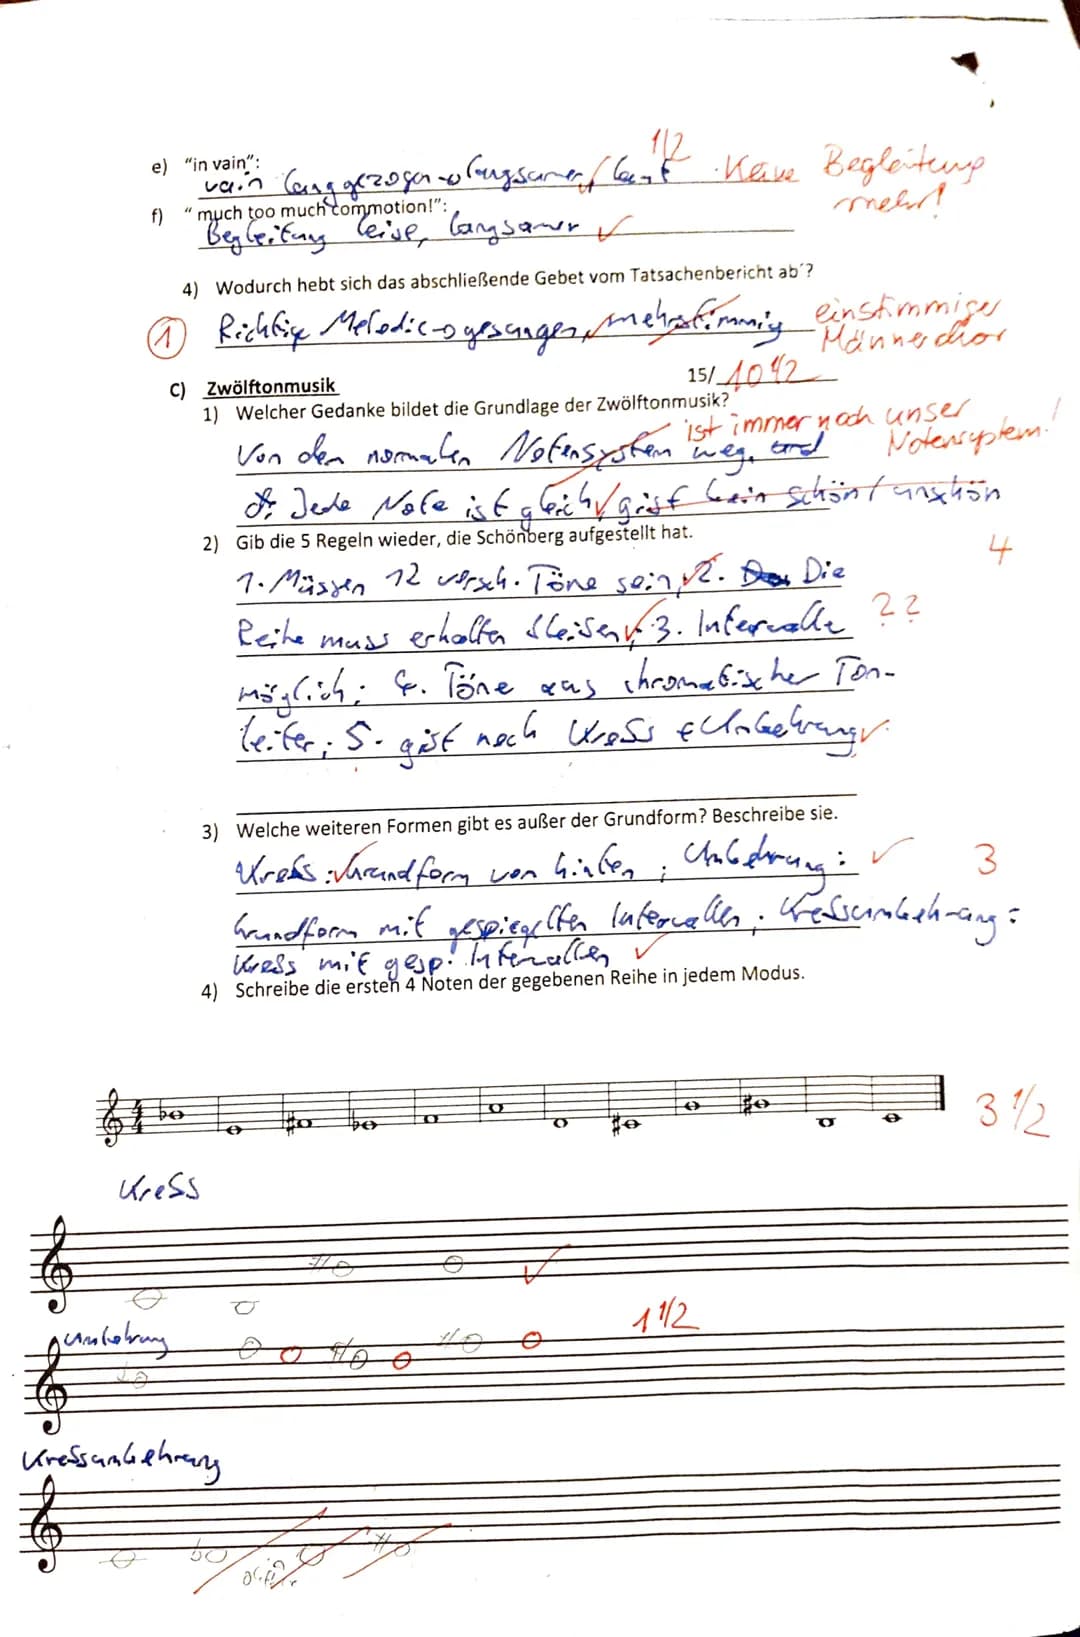 e) "in vain": 1/2
vain lang gezogen → langsamer, laut . Keine Begleitung mehr!
f) "much too much commotion!":
Begleitung leise, langsamer ✓
4) Wodurch hebt sich das abschließende Gebet vom Tatsachenbericht ab´?
1 Richtige Melodie → gesungen, mehrstimmig einstimmiger Männerchor
C) Zwölftonmusik 15/ 10 1/2
1) Welcher Gedanke bildet die Grundlage der Zwölftonmusik?
ist immer noch unser Notensystem!
Von dem normalen Notensystem weg, und
Jede Note ist gleich ✓ gibt kein schön / unschön
2) Gib die 5 Regeln wieder, die Schönberg aufgestellt hat. 4
1. Müssen 12 versch. Töne sein, ✓ 2. Die
Reihe muss erhalten bleiben ✓; 3. Intervalle ??
möglich; 4. Töne aus chromatischer Ton-
leiter; 5. gibt noch Krebs + Umkehrung ✓
3) Welche weiteren Formen gibt es außer der Grundform? Beschreibe sie.
Krebs: ✓ Grundform von hinten; Umkehrung: ✓ 3
Grundform mit gespiegelten Intervallen; Krebsumkehrung:
Krebs mit gesp. Intervallen ✓
4) Schreibe die ersten 4 Noten der gegebenen Reihe in jedem Modus.
4/4
3 1/2
Krebs
✓
Umkehrung 1 1/2
Krebsumkehrung